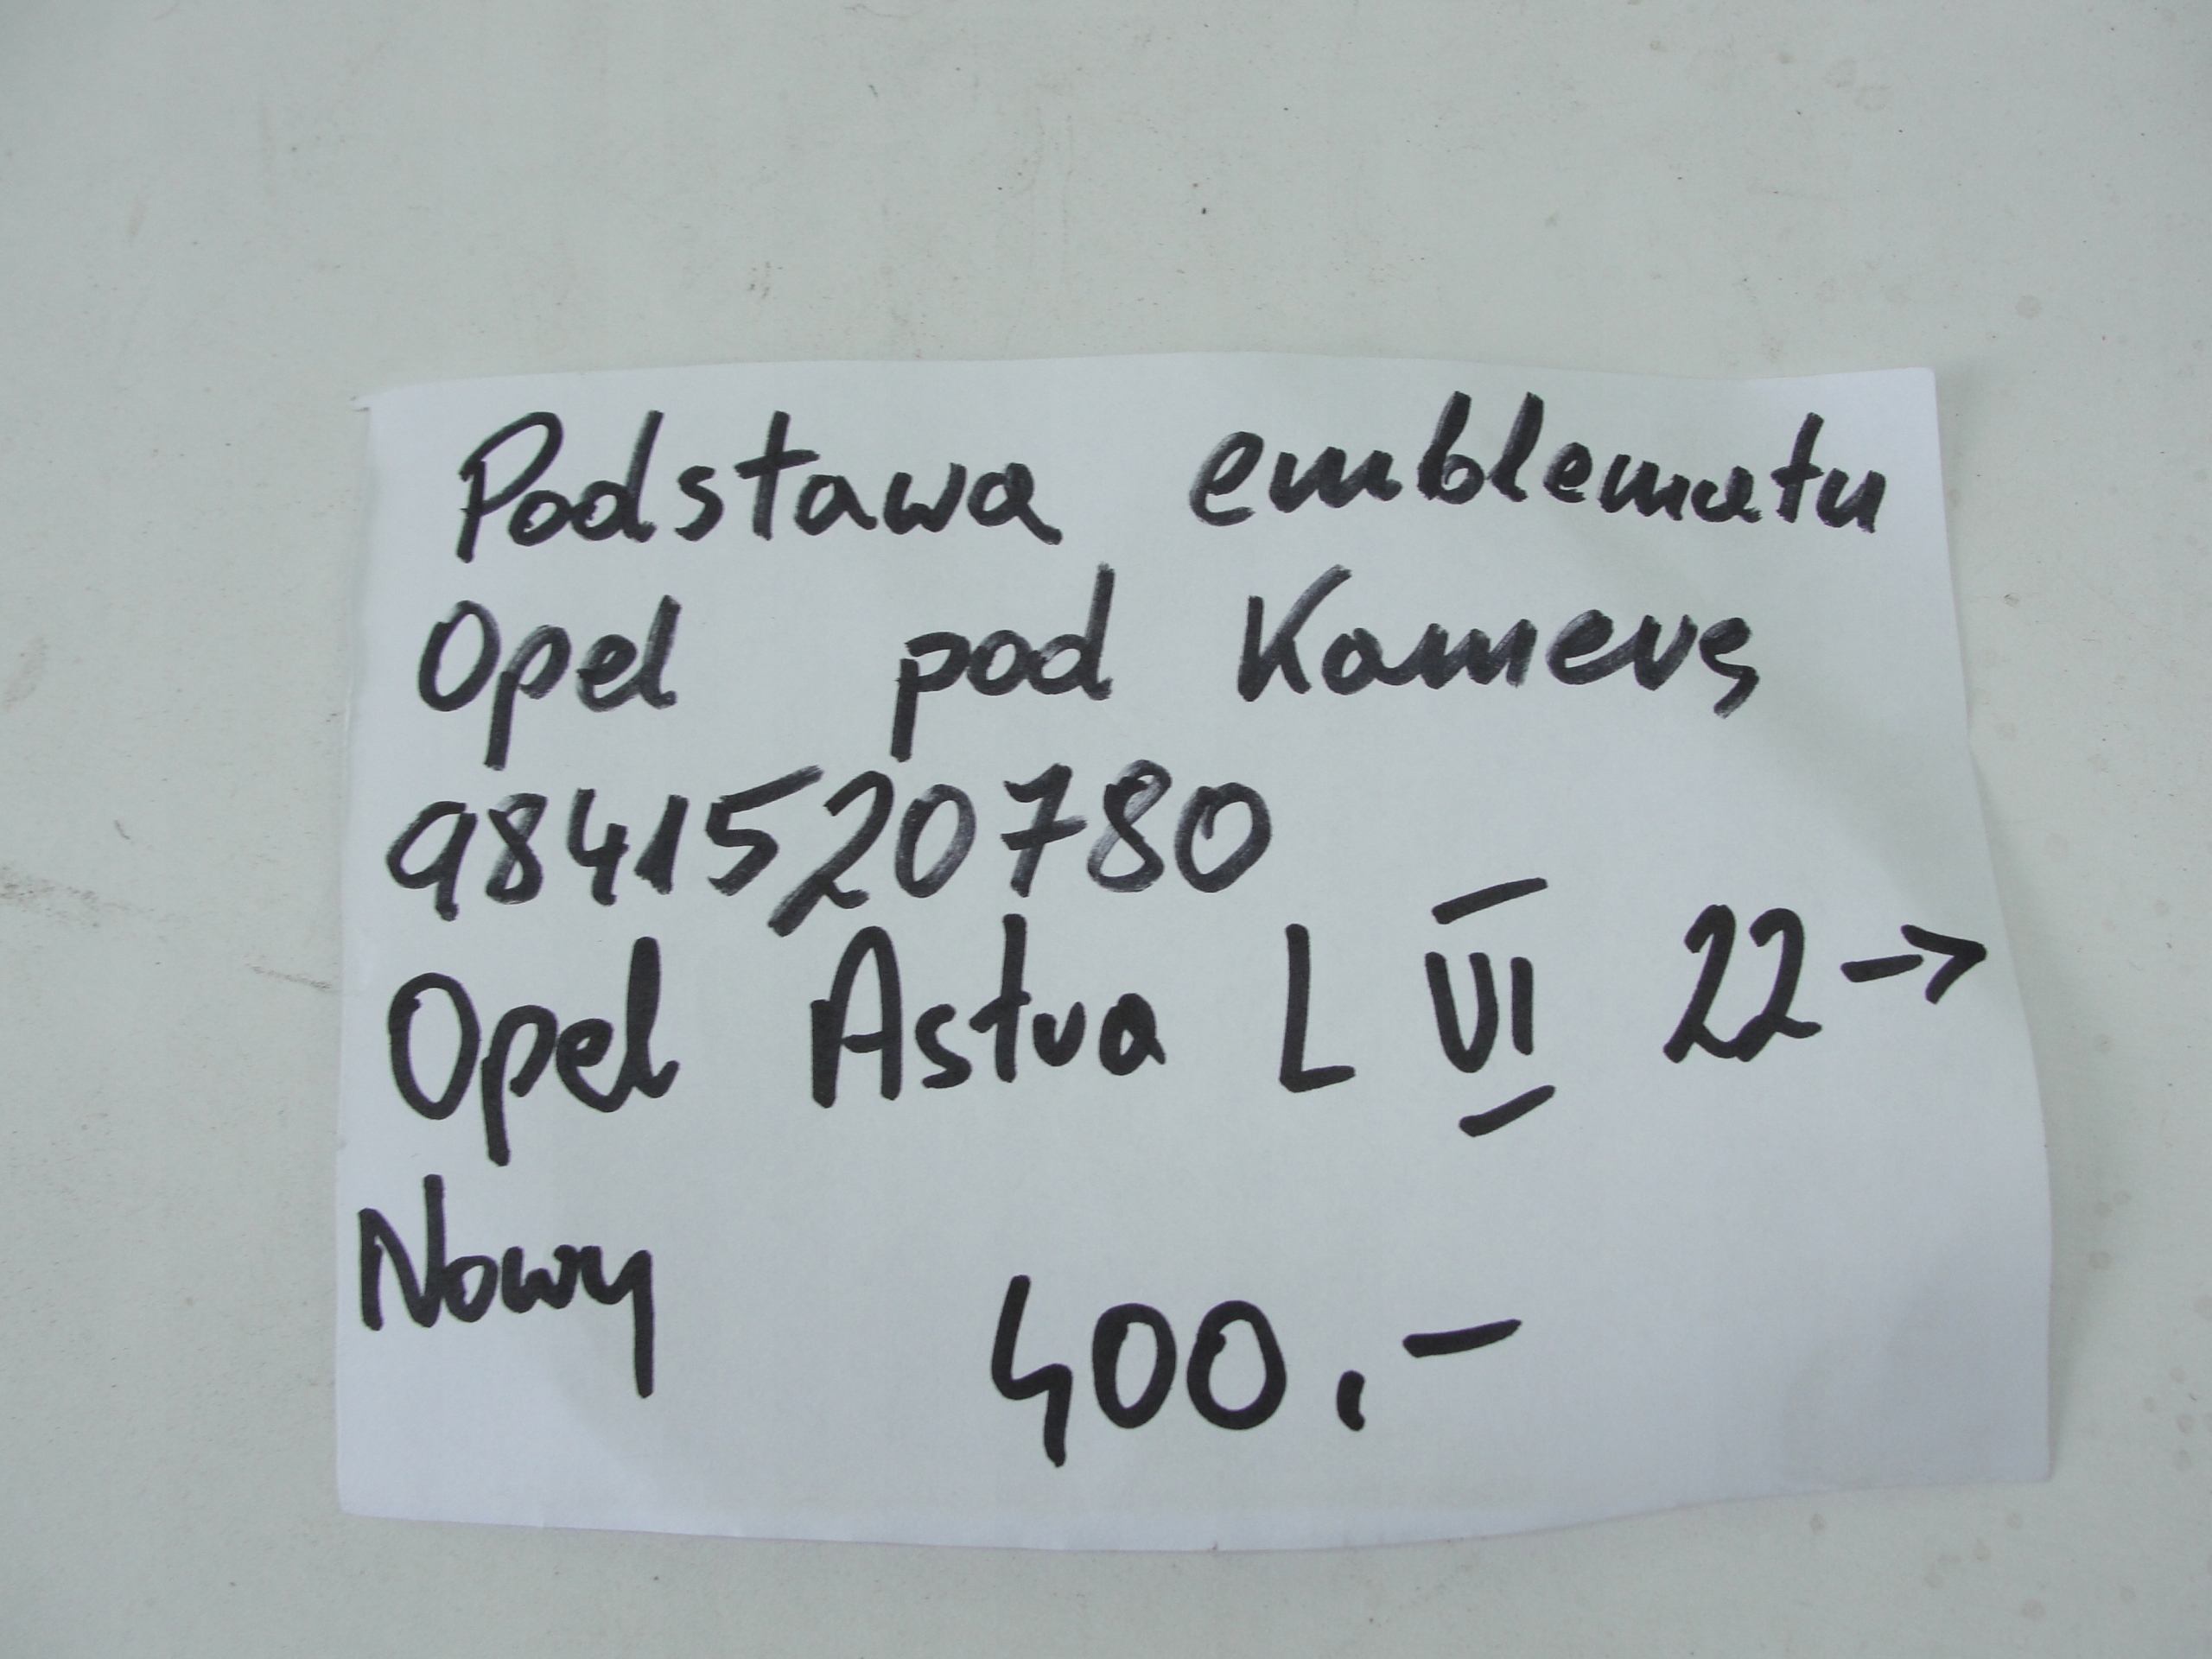 Podstawa emblematu
Opel pod Kamerę
9841520780
Opel Astra L VI 22->
Nowy
400.-